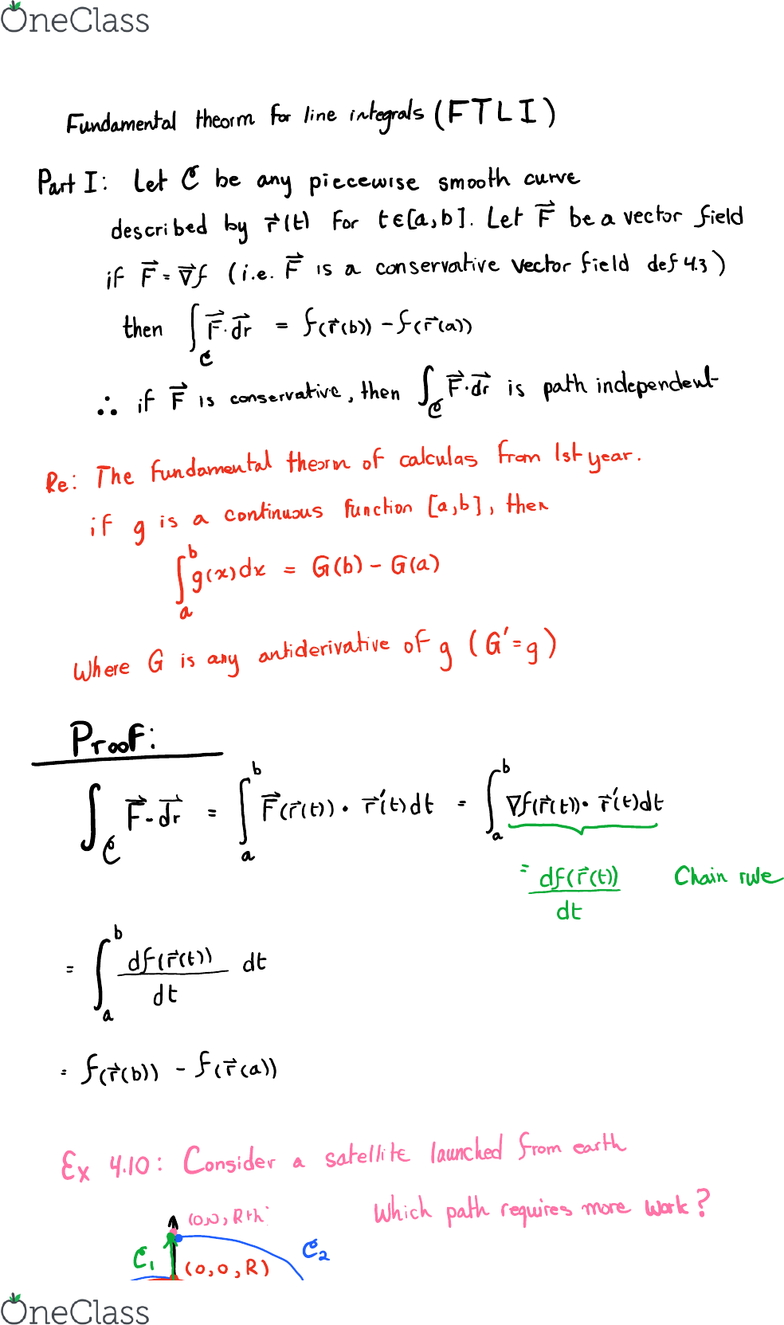 OneClass
Fundamental theorm for line integrals (FTLI)
Part I: Let C be any piecewise smooth curve
described by r⃗(t) for t∈[a,b]. Let F⃗ be a vector field
if F⃗ = ∇⃗f (i.e. F⃗ is a conservative vector field def 4.3)
then ∫_C F⃗·dr⃗ = f(r⃗(b)) - f(r⃗(a))
∴ if F⃗ is conservative, then ∫_C F⃗·dr⃗ is path independent
Re: The fundamental theorm of calculas from 1st year.
if g is a continuous function [a,b], then
∫_a^b g(x)dx = G(b) - G(a)
Where G is any antiderivative of g (G'=g)
Proof:
∫_C F⃗·dr⃗ = ∫_a^b F⃗(r⃗(t))·r⃗'(t)dt = ∫_a^b ∇f(r⃗(t))·r⃗'(t)dt
= df(r⃗(t))/dt Chain rule
= ∫_a^b df(r⃗(t))/dt dt
= f(r⃗(b)) - f(r⃗(a))
Ex 4.10: Consider a satellite launched from earth
Which path requires more work?
(0,0,R+h
C₁ C₂
(0,0,R)
OneClass